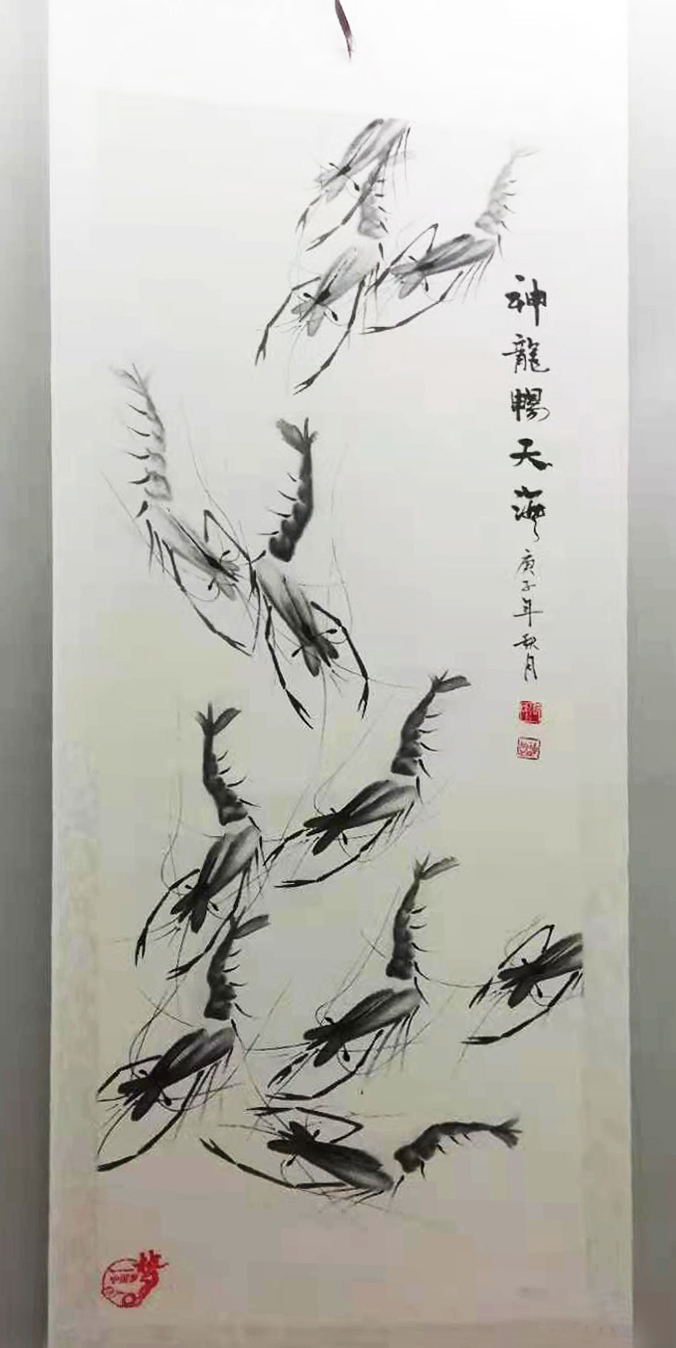 神龍暢天海
庚子年秋月
中国梦
梦